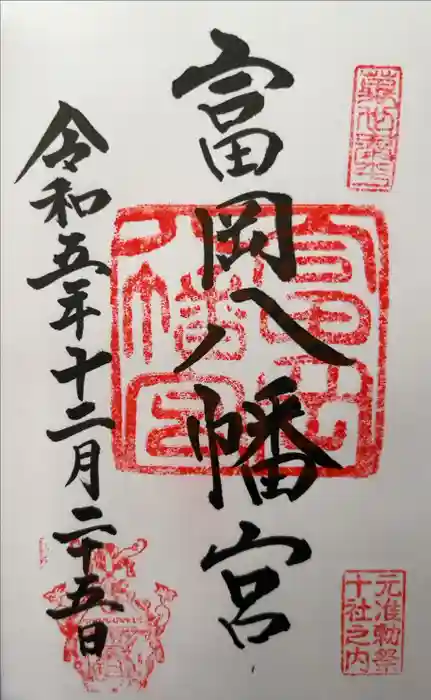 富岡八幡宮
令和五年十二月二十五日
元准勅祭
十社之内